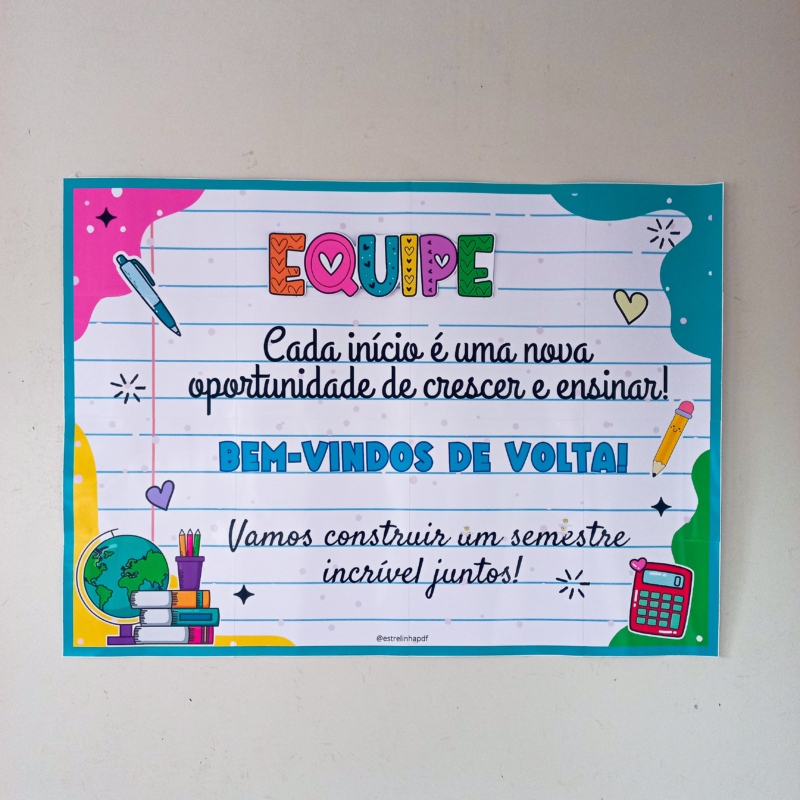 EQUIPE
Cada início é uma nova
oportunidade de crescer e ensinar!
BEM-VINDOS DE VOLTA!
Vamos construir um semestre
incrível juntos!
0
@estrelinhapdf